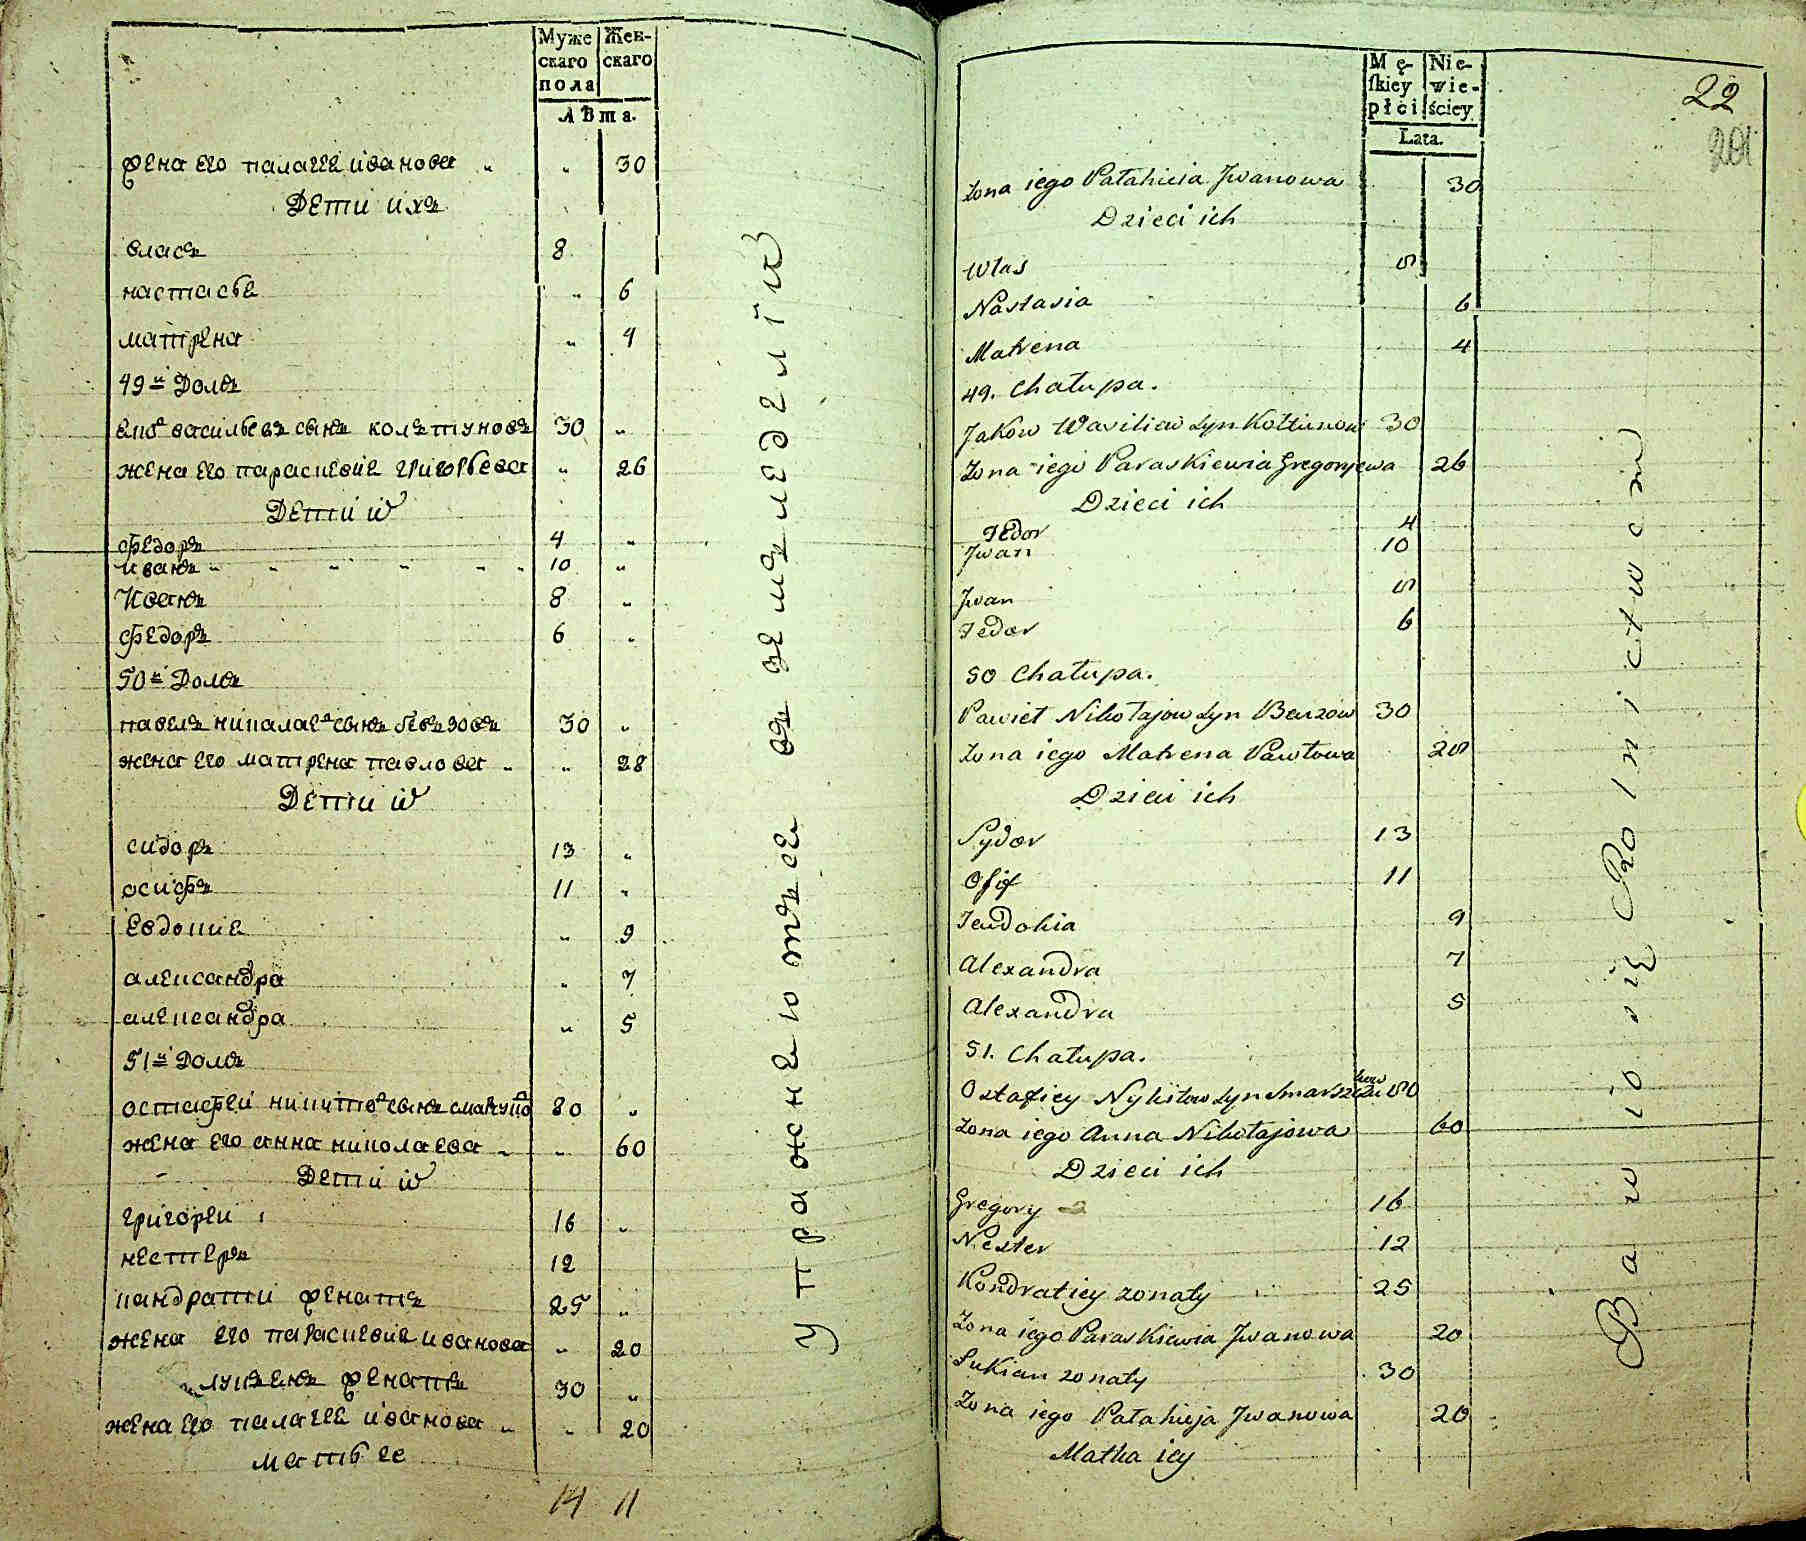 Муже
скаго
пола
Жен-
скаго
Лѣта.
жена его палагея иванова " " 30
Дети ихъ
власъ 8
настасья " 6
матрена " 4
49й Домъ
васильевъ сынъ колътуновъ 30 "
жена его параскевия григорьева " 26
Дети и
федоръ 4 "
иванъ " " " " " " 10 "
Иванъ 8 "
федоръ 6 "
50й Домъ
павелъ сынъ 30 "
жена его матрена павлова " " 28
Дети и
сидоръ 13 "
осифъ 11 "
Евдокия " 9
александра " 7
александра " 5
51й Домъ
остафей сынъ 80 "
жена его анна николаева " " 60
Дети и
григорей 16 "
нестеръ 12
кандратий женатъ 25 "
жена его параскевия иванова " 20
женатъ 30 "
жена его палагея иванова " " 20
мать ее
14 11
упражняютъся въ земледелїи
Mę-
skiey
płci
Nie-
wie-
ściey
Lata.
22
201
Zona iego Pałahieia Jwanowa 30
Dzieci ich
Włas 8
Nastasia 6
Matrena 4
49. Chałupa.
Jakow Wasiliew Syn Kołtunow 30
Zona iego Paraskiewia Gregoryewa 26
Dzieci ich
Fedor 4
Jwan 10
Jwan 8
Fedor 6
50 Chałupa.
Pawieł Nikołajow Syn 30
Zona iego Matrena Pawłowa 28
Dzieci ich
Sydor 13
Osif 11
Jewdokia 9
Alexandra 7
Alexandra 5
51. Chałupa.
Ostafiey Nykitow Syn 80
Zona iego Anna Nikołajowa 60
Dzieci ich
Gregory 16
Nester 12
Kondratiey zonaty 25
Zona iego Paraskiewia Jwanowa 20
Lukian zonaty 30
Zona iego Pałahieja Jwanowa 20
Matka iey
Bawio się Rolnictwem